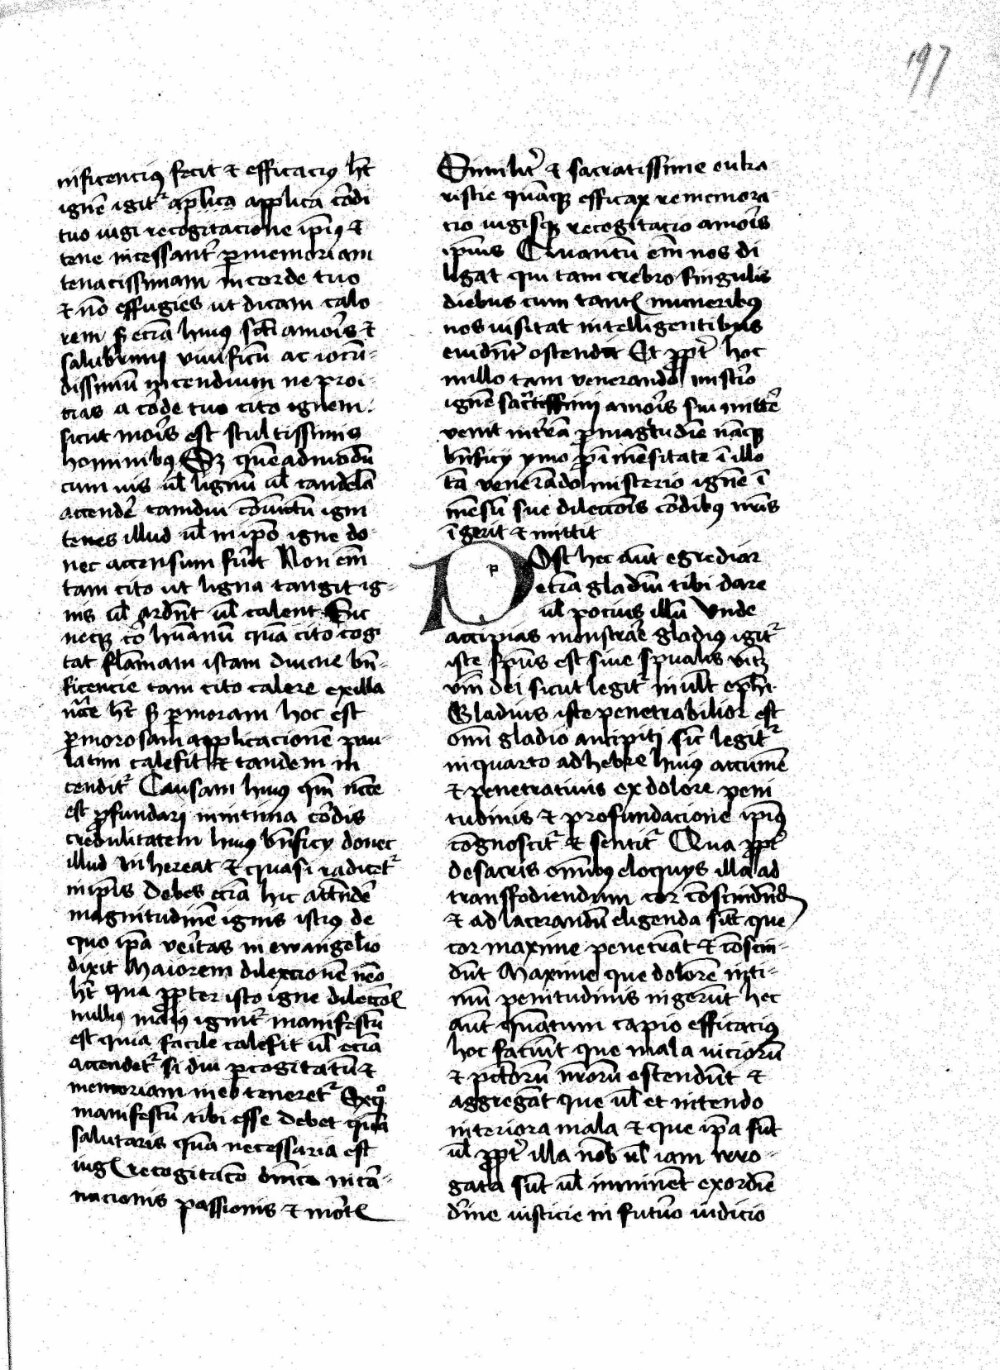 197
nificencius fecit et efficacius ht̄
ignē igitr̄ aplica applica cōdi
tuo iugi recogitacione ip̄ius et
tene incessantr̄ p memoriam
tenacissimam in corde tuo
et nō effugies ut dicam calo
rem sꝫ eciā huius scī amoris et
viuificū ac iocun-
dissimū incendium ne proi
cias a corde tuo cito ignem
sicut moris est stultissimis
hominibus Sꝫ quēadmodū
cum uis ul̄ lignū ul̄ candelā
accendēr tamdiu igni
tenes illud ul̄ in ip̄o igne do
nec accensum fūit Non em̄
tam cito ut ligna tangit ig-
nis ul̄ ardēt ul̄ calent Sic
necqꝫ cor hūanū quā cito cogi
tat flāmam istam diuine bn̄-
ficencie tam cito calere ex illa
nc̄ce ht̄ sꝫ p moram hoc est
p morosam applicacionē pau
latim calefit et tandem in
cenditr̄ Causam huius qm̄ nc̄ce
est pfundari in intima cordis
credulitatem huius bn̄ficij donec
illud inhereat et quasi radicetr̄
in ip̄is Debes eciā hic attēdē
magnitudinē ignis istius de
quo ip̄a veritas in ewangelio
dixit Maiorem dilexcionē nēo
ht̄ qua ppter isto igne dilectōis
nullius maius ignitr̄ manifestū
est quia facile calefit ul̄ eciā
accendetr̄ si diu p cogitatū et
memoriam in eo teneretr̄ Ex quo
manifestū tibi esse debet quā
salutaris quā necessaria est
iugis recogitaco dn̄ice incar-
nacionis passionis et mortis
Similitr̄ et sacratissime euka
ristie quāqꝫ efficax rememora
cio iugisqꝫ recogitacio amoris
ip̄ius Quantū em̄ nos di
ligat qui tam crebro singulis
diebus cum tantis muneribus
nos uisitat intelligentibus
euidntr̄ ostendit Et pptr̄ hoc
nullo tam venerando mistrio
ignē sacrtissimi amoris sui mittēr
venit in terrā p magtudinē nāqꝫ
bn̄ficij ymo p imēsitate ī illo
tā venerādo misterio ignē ī
mēsū sue dilectōis cordibus nr̄is
īgerit et mittit
Post hec aūt egredior
etiā gladiū tibi dare
ul̄ pocius illū Vnde
accipias monstrare gladius igitr̄
iste spūs est siue spualis vitꝫ
vm̄ dei sicut legitr̄ in ult̄ eph̄i
Gladius iste penetrabilior est
omī gladio ancipiti sic̄ legitr̄
in quarto ad hebre huius accumē
et penetratiuis ex dolore peni
tudinis et profundacione ip̄ius
cōgnoscitr̄ et sentitr̄ Qua pptr̄
de sacris oīnibus eloquijs illa ad
transfodiendum cor cōscindn̄d
et ad lacerandū eligenda sūt que
cor maxime penetrāt et cōscin-
dūt Maxime que dolorē inti-
mū penitudinis ingerūt hec
aūt quātum capio efficacius
hoc faciūt que mala viciorū
et pctōrū nr̄orū ostendūt et
aggregāt que ul̄ et intendo
interiora mala et que ip̄a sūt
ul̄ pptr̄ illa nob ul̄ iam irro-
gata sūt ul̄ imminēt exordie
diuine iusticie in futuro iudicio